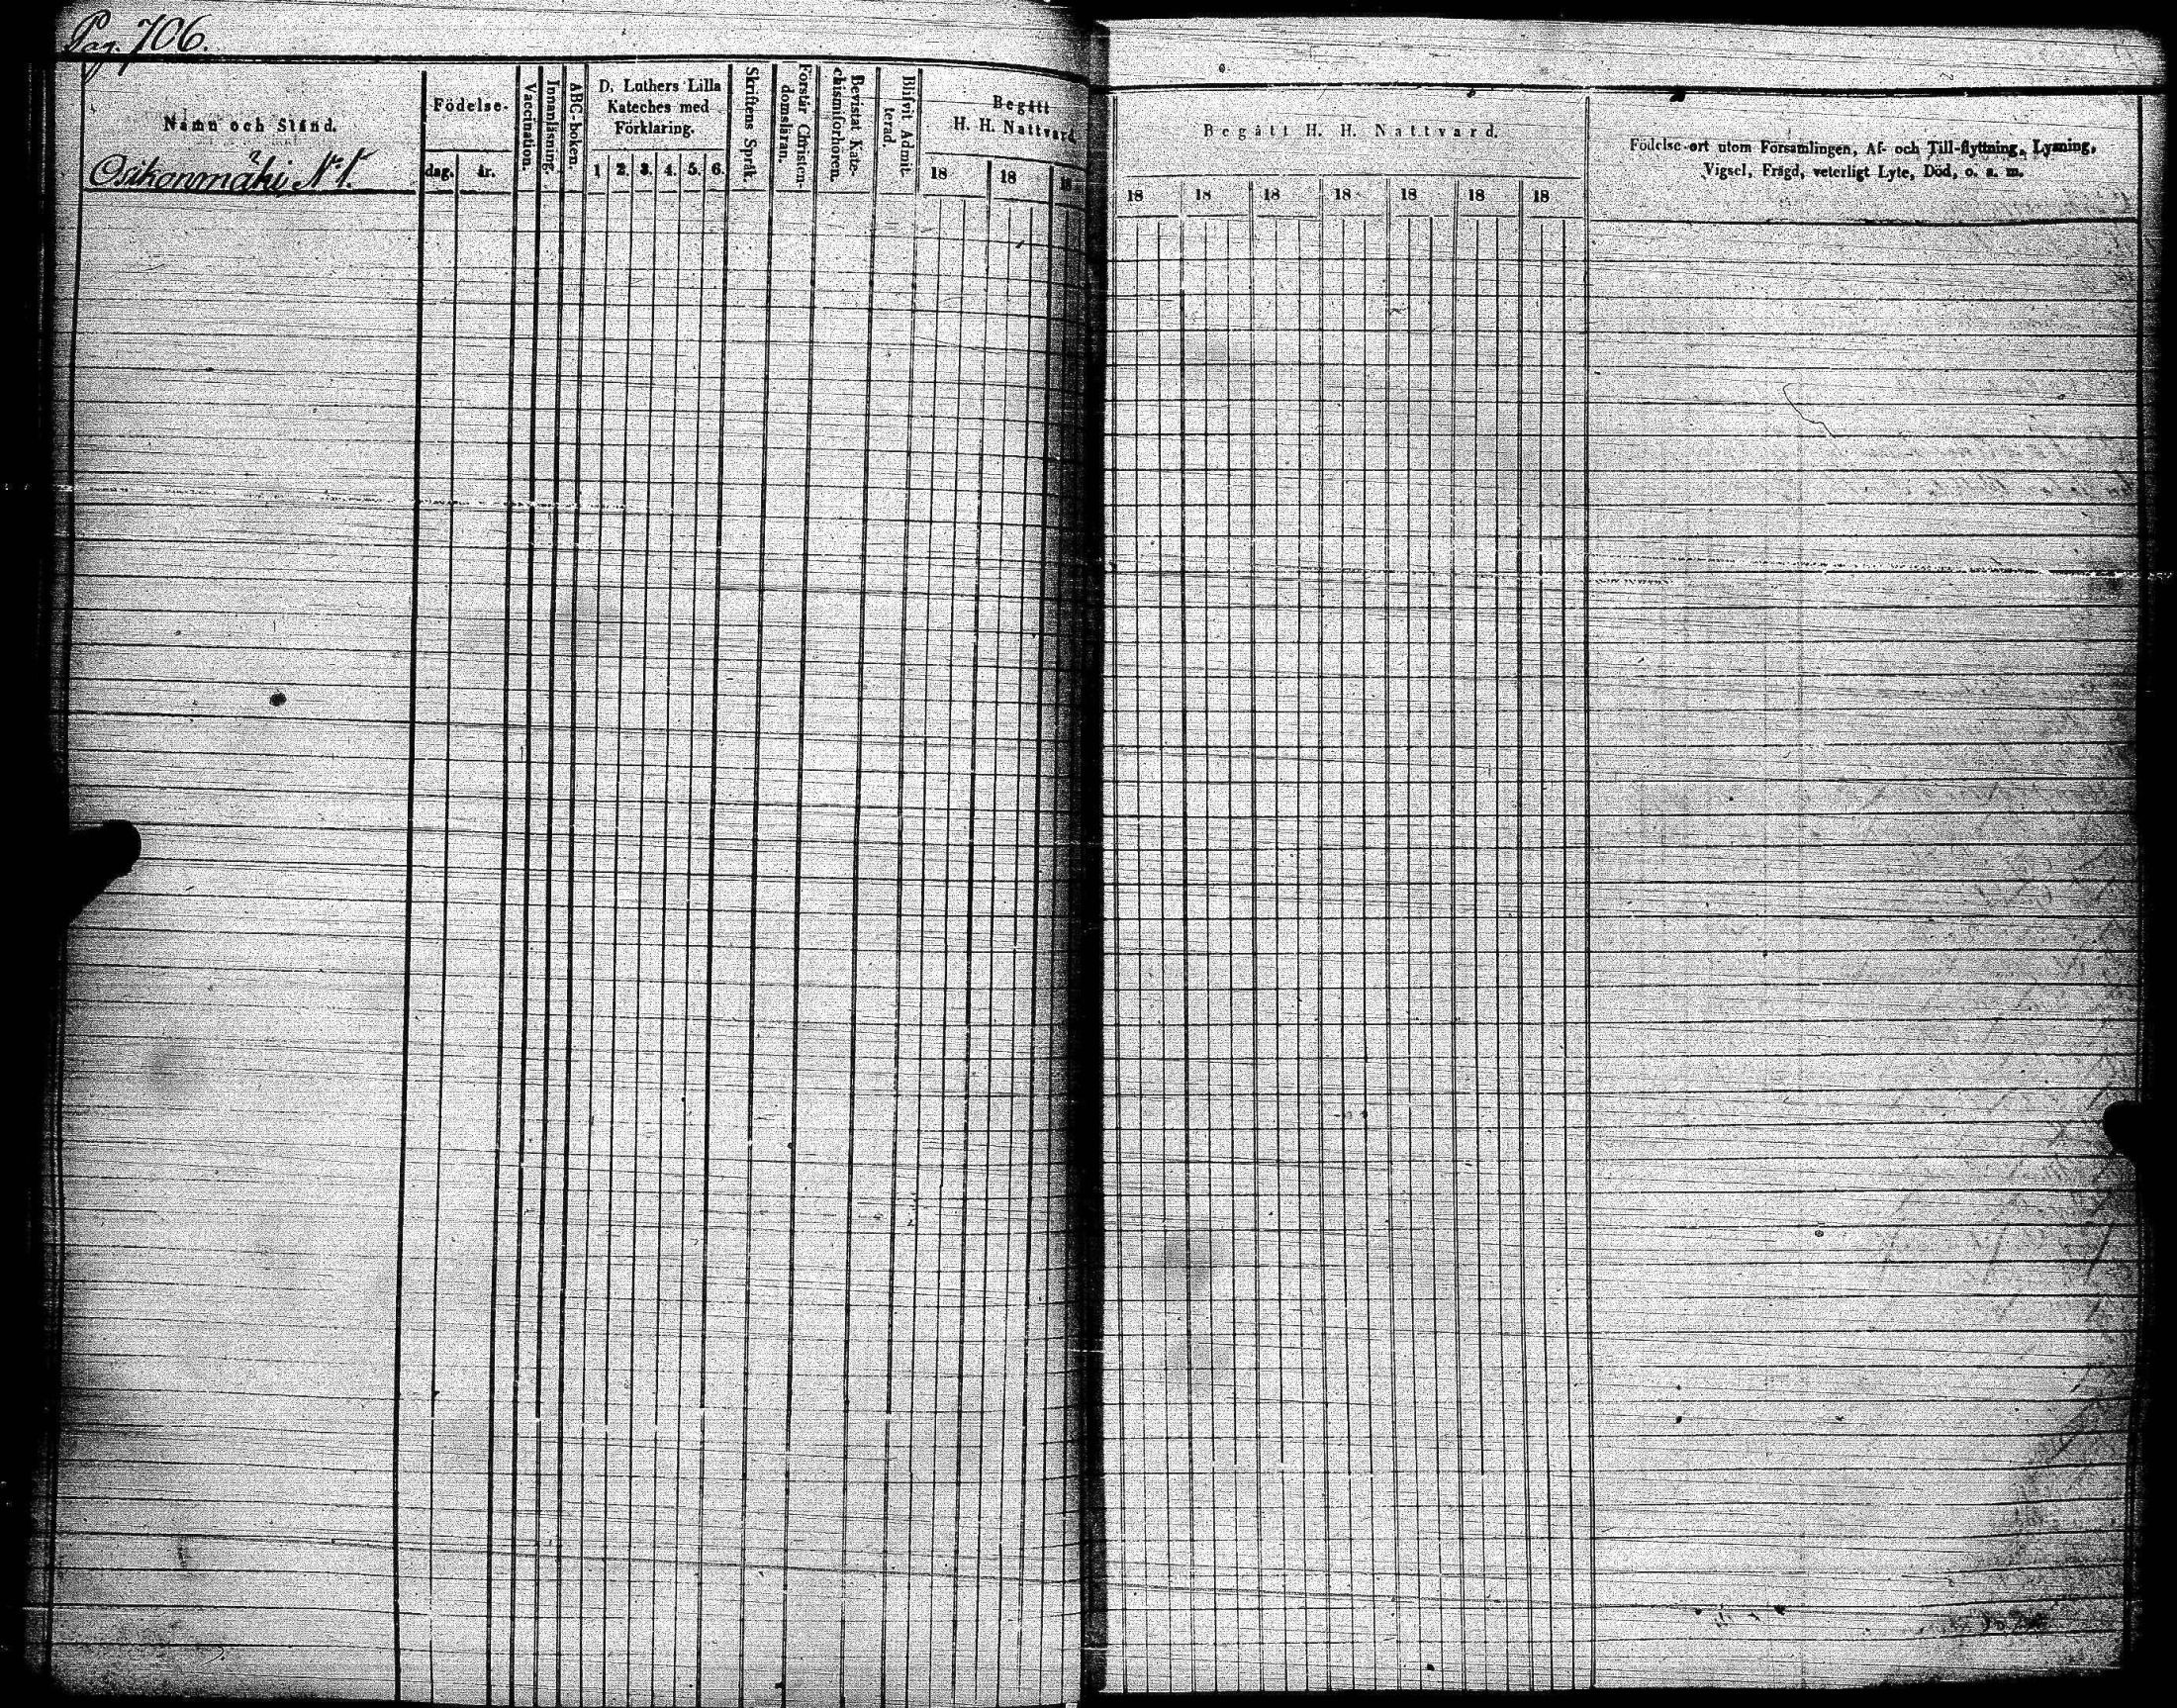 Pag. 706.
Namn och Stånd.
Osikonmäki N:1.
Födelse-
dag. år.
Vaccination.
Innanläsning.
ABC-boken.
D. Luthers Lilla
Kateches med
Förklaring.
1 2. 3. 4. 5. 6.
Skriftens Språk.
Förstår Christen-
domsläran.
Bevistat Kate-
chismiförhören.
Blifvit Admit-
terad.
Begått
H. H. Nattvard.
18 18 18
Begått H. H. Nattvard.
18 18 18 18 18 18 18
Födelse-ort utom Församlingen, Af- och Till-flyttning, Lysning,
Vigsel, Frägd, veterligt Lyte, Död, o. s. m.